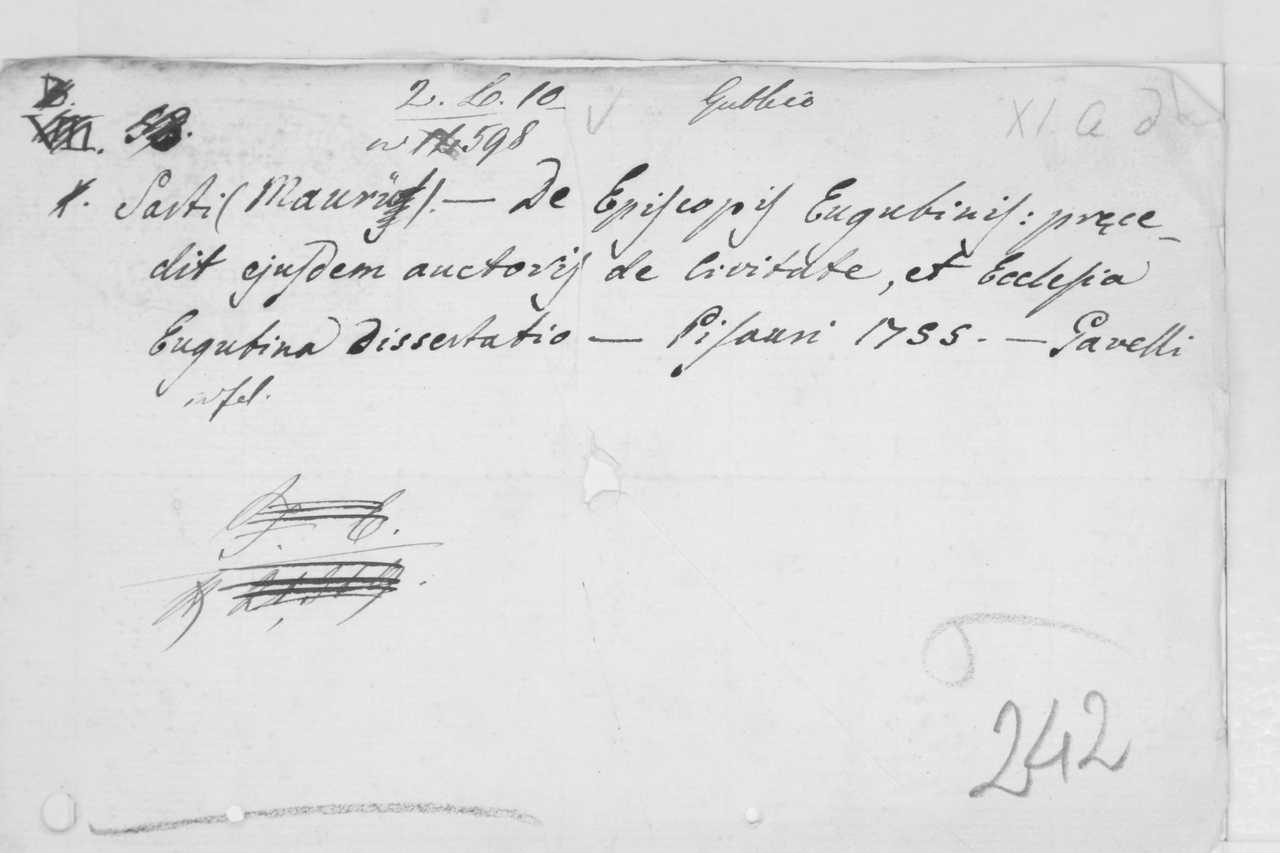 2. L. 10
Gubbio
XI a d
598
Sarti (Mauri). — De Episcopis Eugubinis: pręce-
dit ejusdem auctoris de Civitate, et Ecclesia
Eugubina Dissertatio — Pisauri 1755. — Gavelli
in fol.
242